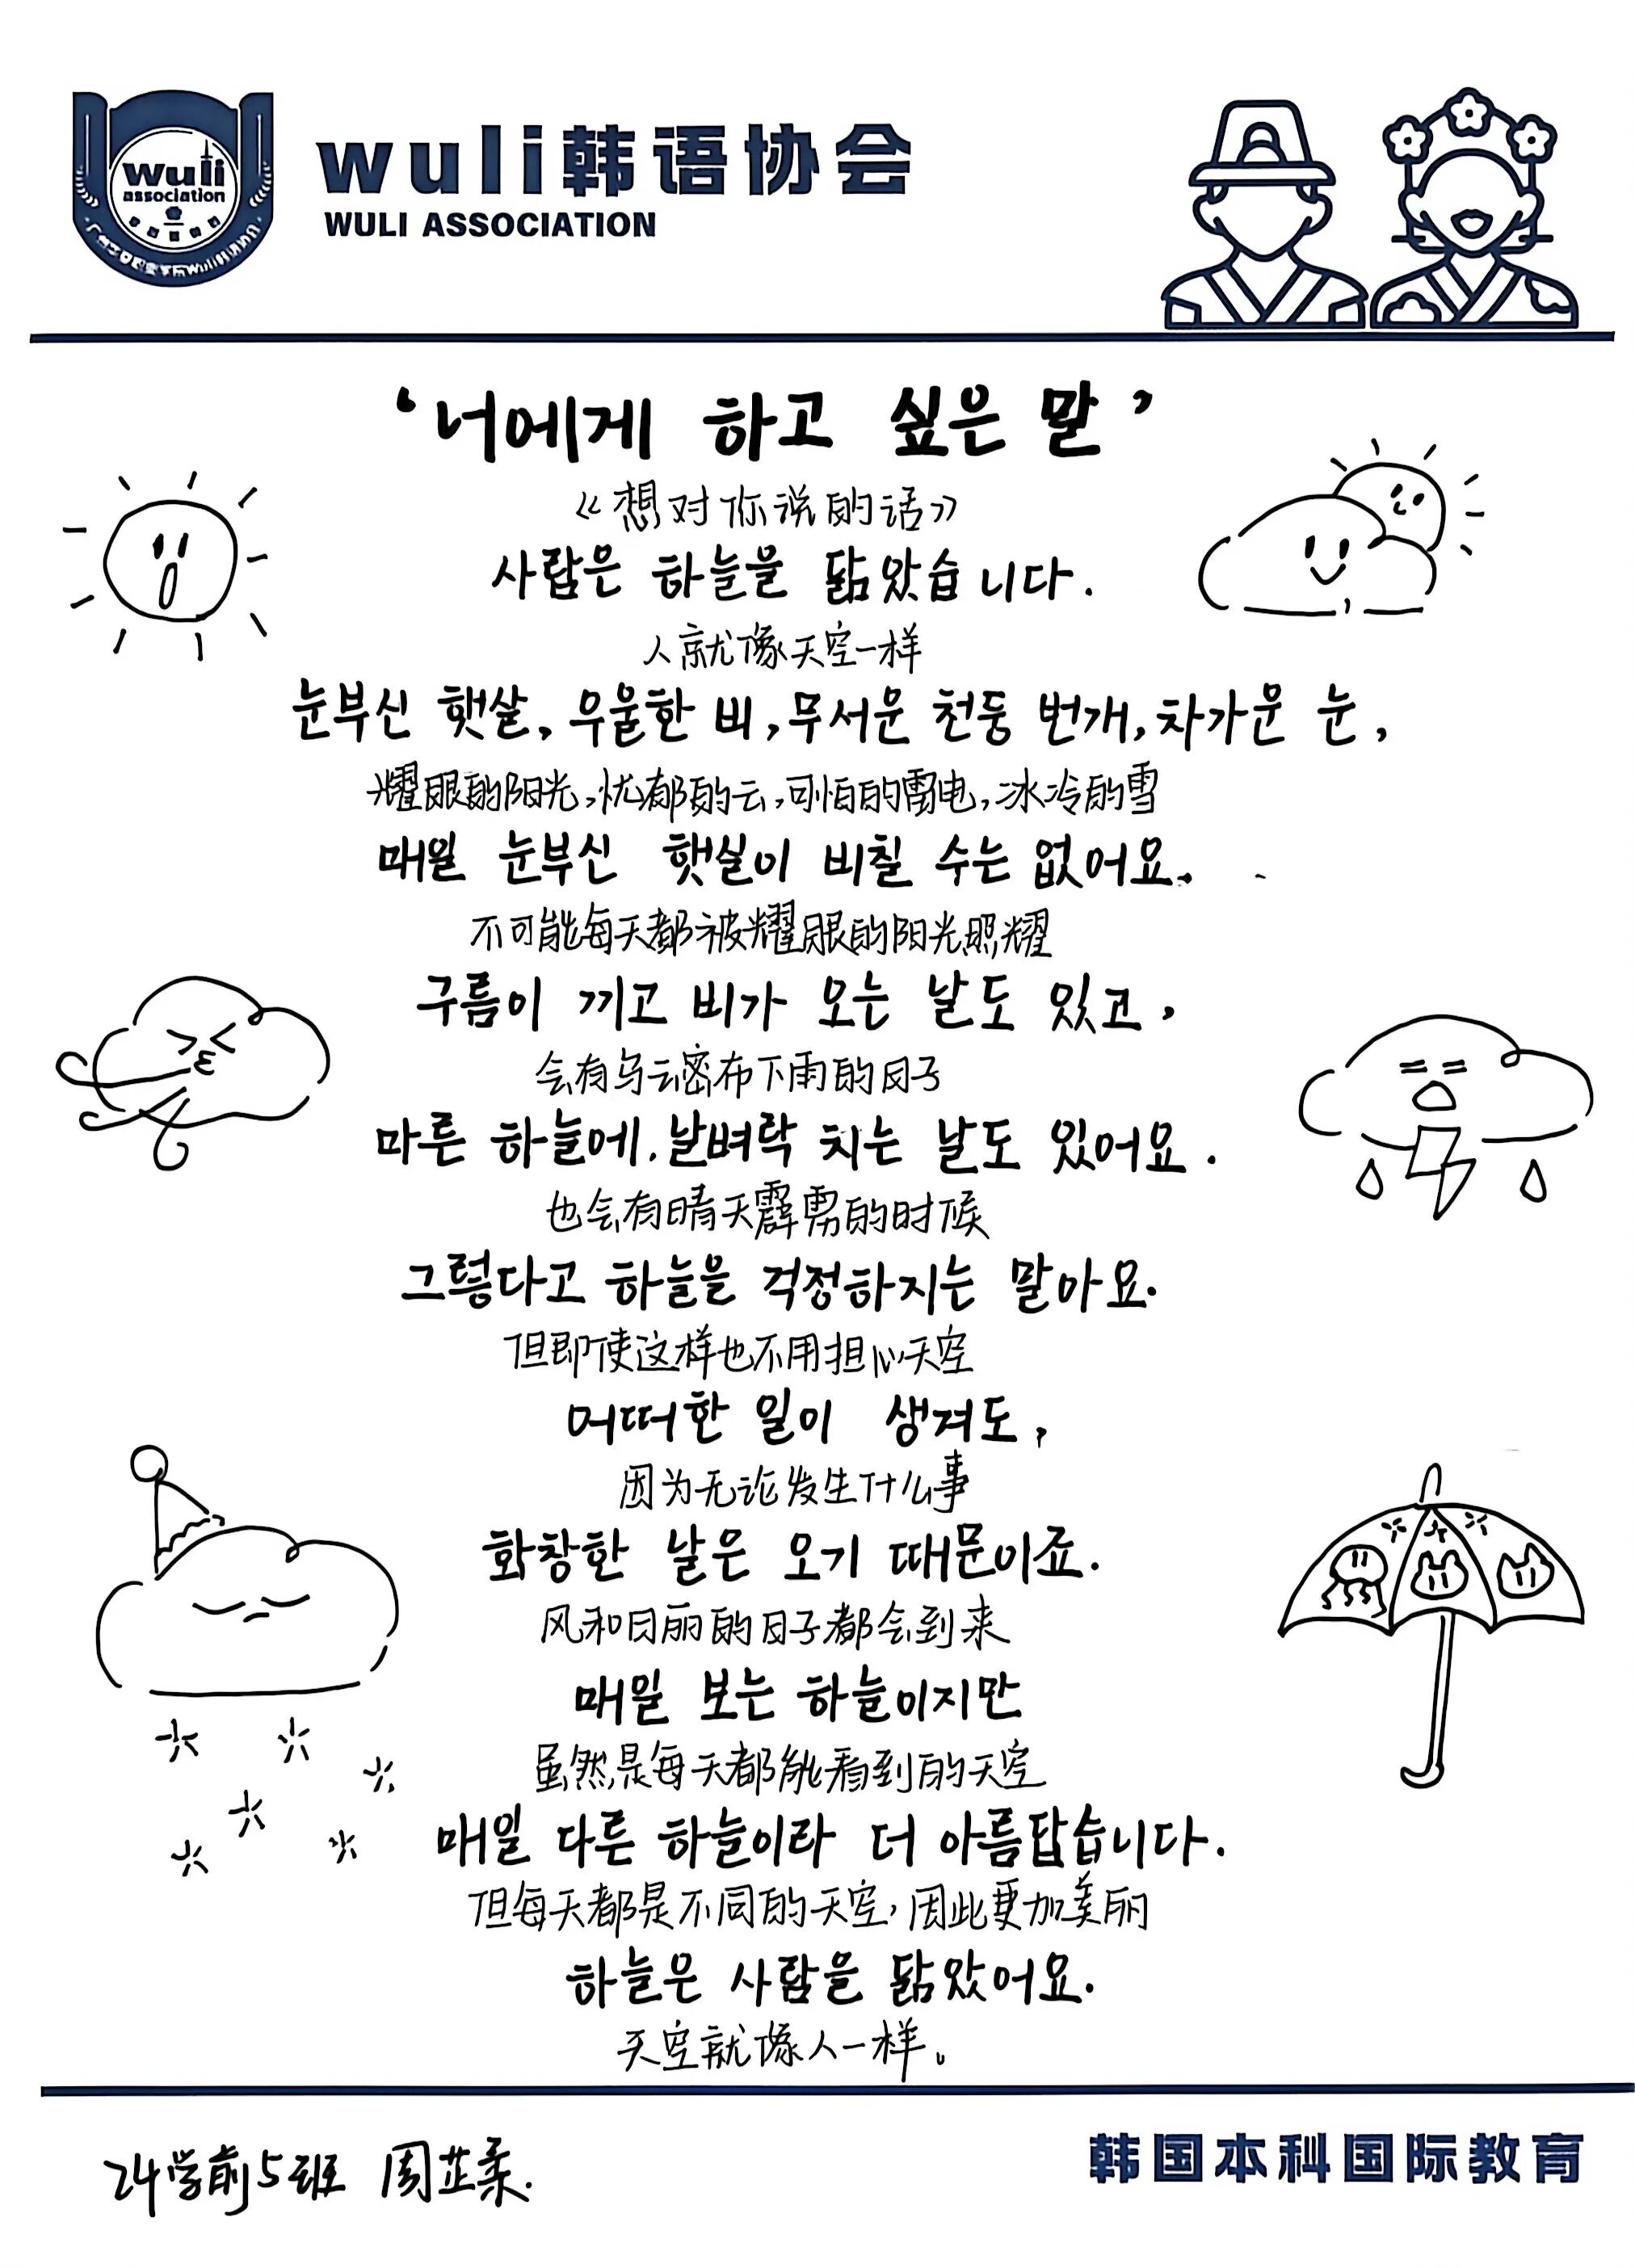 wuli
association
wuli韩语协会
WULI ASSOCIATION
‘너에게 하고 싶은 말’
《想对你说的话》
사람은 하늘을 닮았습니다.
人就像天空一样
눈부신 햇살, 우울한 비, 무서운 천둥 번개, 차가운 눈,
耀眼的阳光,忧郁的云,可怕的雷电,冰冷的雪
매일 눈부신 햇실이 비칠 수는 없어요.
不可能每天都被耀眼的阳光照耀
구름이 끼고 비가 오는 날도 있고,
会有乌云密布下雨的日子
마른 하늘에.날벼락 치는 날도 있어요.
也会有晴天霹雳的时候
그렇다고 하늘을 걱정하지는 말아요.
但即使这样也不用担心天空
어떠한 일이 생겨도,
因为无论发生什么事
화창한 날은 오기 때문이죠.
风和日丽的日子都会到来
매일 보는 하늘이지만
虽然是每天都能看到的天空
매일 다른 하늘이라 더 아름답습니다.
但每天都是不同的天空,因此更加美丽
하늘은 사람을 닮았어요.
天空就像人一样。
24学前5班 周芷柔.
韩国本科国际教育